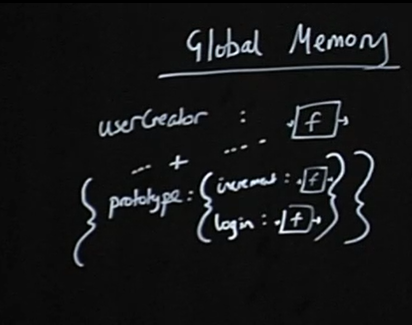 Global Memory
userCreator : f
--- + ----
{ prototype : { increment : f } }
login : f